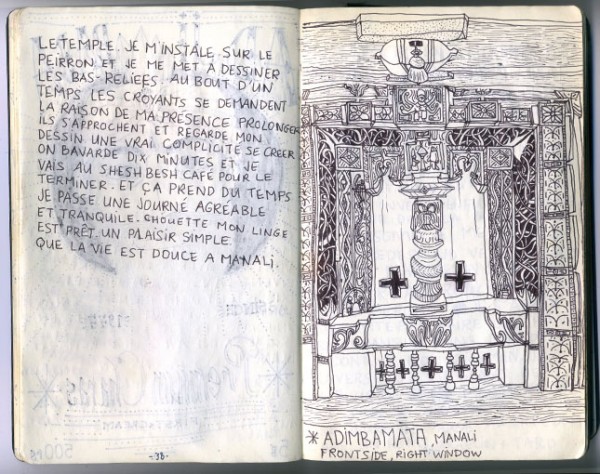 LE TEMPLE. JE M'INSTALE SUR LE
PEIRRON ET JE ME MET A DESSINER
LES BAS-RELIEFS. AU BOUT D'UN
TEMPS LES CROYANTS SE DEMANDENT
LA RAISON DE MA PRESENCE PROLONGER
ILS S'APPROCHENT ET REGARDE MON
DESSIN UNE VRAI COMPLICITÉ SE CREER
ON BAVARDE DIX MINUTES ET JE
VAIS AU SHESH BESH CAFÉ POUR LE
TERMINER. ET ÇA PREND DU TEMPS
JE PASSE UNE JOURNÉ AGRÉABLE
ET TRANQUILE. CHOUETTE MON LINGE
EST PRÊT. UN PLAISIR SIMPLE.
QUE LA VIE EST DOUCE A MANALI.
-38-
* ADIMBAMATA, MANALI
FRONTSIDE, RIGHT WINDOW